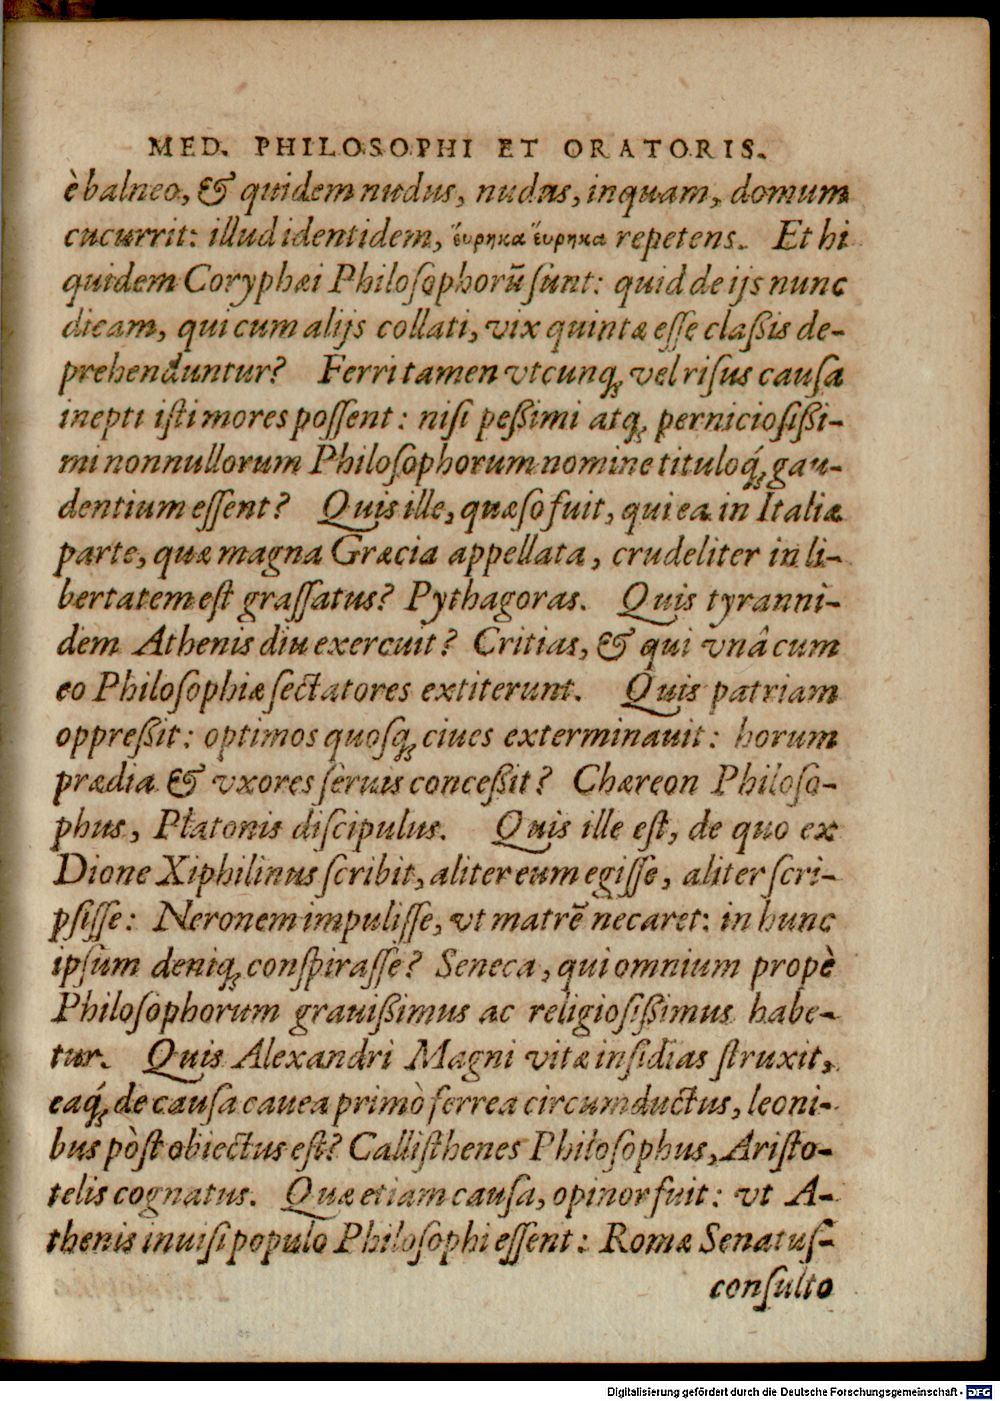 MED. PHILOSOPHI ET ORATORIS.
è balneo, & quidem nudus, nudus, inquam, domum
cucurrit: illud identidem, ἕυρηκα ἕυρηκα repetens. Et hi
quidem Coryphæi Philosophorũ sunt: quid de ijs nunc
dicam, qui cum alijs collati, vix quintæ esse claßis de-
prehenduntur? Ferri tamen vtcunq; vel risus causa
inepti isti mores possent: nisi peßimi atq; perniciosißi-
mi nonnullorum Philosophorum nomine tituloq́; gau-
dentium essent? Quis ille, quæso fuit, qui ea in Italiæ
parte, quæ magna Græcia appellata, crudeliter in li-
bertatem est grassatus? Pythagoras. Quis tyranni-
dem Athenis diu exercuit? Critias, & qui vnâ cum
eo Philosophiæ sectatores extiterunt. Quis patriam
oppreßit: optimos quosq; ciues exterminauit: horum
prædia & vxores seruis conceßit? Chæreon Philoso-
phus, Platonis discipulus. Quis ille est, de quo ex
Dione Xiphilinus scribit, aliter eum egisse, aliter scri-
psisse: Neronem impulisse, vt matrẽ necaret: in hunc
ipsum deniq; conspirasse? Seneca, qui omnium propè
Philosophorum grauißimus ac religiosißimus habe-
tur. Quis Alexandri Magni vitæ insidias struxit,
eaq́; de causa cauea primò ferrea circumductus, leoni-
bus pòst obiectus est? Callisthenes Philosophus, Aristo-
telis cognatus. Quæ etiam causa, opinor fuit: vt A-
thenis inuisi populo Philosophi essent: Romæ Senatus-
consulto
Digitalisierung gefördert durch die Deutsche Forschungsgemeinschaft - DFG